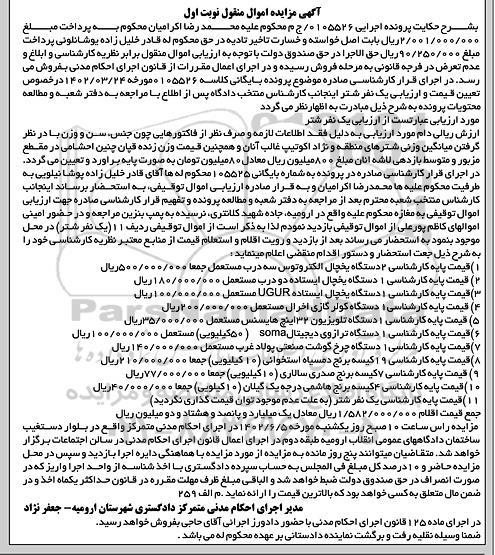 آگهی مزایده اموال منقول نوبت اول
بشرح حکایت پرونده اجرایی ۰۱۰۵۵۲۶/ج م محکوم علیه محمد رضا اکرامیان محکوم به پرداخت مبلغ
۲/۰۰۱/۰۰۰/۰۰۰ریال بابت اصل خواسته و خسارت تاخیر تادیه در حق محکوم له قادر خلیل زاده پوشانلوئی پرداخت
مبلغ ۹۰/۲۵۰/۰۰۰ریال حق الاجرا در حق صندوق دولت با توجه به ارزیابی اموال منقول برابر نظریه کارشناسی و ابلاغ و
عدم تعرض در فرجه قانونی به مرحله فروش رسیده و در اجرای اعمال مقررات از قانون اجرای احکام مدنی بفروش می
رسد. در اجرای قرار کارشناسی صادره موضوع پرونده بایگانی کلاسه ۰۱۰۵۵۲۶ مورخه ۱۴۰۲/۰۳/۲۴ درخصوص
تعیین قیمت و ارزیابی یک نفر شتر اینجانب کارشناس منتخب دادگاه پس از اطلاع با مراجعه به دفتر شعبه و مطالعه
محتویات پرونده به شرح ذیل مبادرت به اظهارنظر می گردد
مورد ارزیابی عبارتست از ارزیابی یک نفر شتر
ارزش ریالی دام مورد ارزیابی به دلیل فقد اطلاعات لازمه و صرف نظر از فاکتورهایی چون جنس، سن و وزن با در نظر
گرفتن میانگین وزنی شترهای منطقه و نژاد اکوتیپ غالب آنان و همچنین قیمت وزن زنده قپان چنین احشامی در مقطع
مزبور و متوسط بازدهی لاشه آنان مبلغ ۸۰۰میلیون ریال معادل ۸۰میلیون تومان به صورت پایه برآورد و تعیین می گردد.
در اجرای قرار کارشناسی صادره در پرونده به شماره بایگانی ۰۱۰۵۵۲۵ محکوم له ها آقای قادر خلیل زاده پوشانیلویی به
طرفیت محکوم علیه ها محمدرضا اکرامیان و به قرار صادره ارزیابی اموال توقیفی، به استحضار برساند اینجانب
کارشناس منتخب شعبه محترم بعد از مراجعه به دفتر شعبه و مطالعه پرونده و تفهیم قرار کارشناسی صادره جهت ارزیابی
اموال توقیفی به مغازه محکوم علیه واقع در ارومیه، جاده شهید کلانتری، نرسیده به پمپ بنزین مراجعه و در حضور امینی
اموالهای کاظم پورعلی از اموال توقیفی بازدید نمودم لذا به ذکر است از اموال توقیفی ردیف ۱۱ (یک نفر شتر) در محل
موجود نبود به استحضار می رساند بعد از بازدید و رویت اقلام و استعلام قیمت از منابع معتبر نظریه کارشناسی خود را
به شرح ذیل جعت استحضار و دستور اقدام منقضی اعلام مینماید:
۱)قیمت پایه کارشناسی ۲دستگاه یخچال الکتروتوس سه درب مستعمل جمعا ۵۰۰/۰۰۰/۰۰۰ریال
۲)قیمت پایه کارشناسی ۱ دستگاه یخچال ایستاده دو درب مستعمل ۱۸۰/۰۰۰/۰۰۰ریال
۳)قیمت پایه کارشناسی ۱دستگاه یخچال ایستاده UGUR مستعمل ۱۰۰/۰۰۰/۰۰۰ریال
۴)قیمت پایه کارشناسی ۱ دستگاه کولر گازی اخرال مستعمل ۲۰۰/۰۰۰/۰۰۰ریال
۵)قیمت پایه کارشناسی ۱ دستگاه تلویزیون ۳۲اینچ هایسنس مستعمل ۳۵/۰۰۰/۰۰۰ریال
۶)قیمت پایه کارشناسی ۱دستگاه ترازوی دیجیتال soma (۵۰کیلویی) مستعمل ۱۰۰/۰۰۰/۰۰۰ریال
۷)قیمت پایه کارشناسی ۱ دستگاه چرخ گوشت صنعتی پولاد غرب مستعمل ۱۴۰/۰۰۰/۰۰۰ریال
۸)قیمت پایه کارشناسی ۱۹کیسه برنج دمسیاه استخوانی (۱۰کیلویی) جمعا ۲۱۰/۰۰۰/۰۰۰ریال
۹)قیمت پایه کارشناسی ۷کیسه برنج صدری سالاری (۱۰کیلویی) جمعا ۷۷/۰۰۰/۰۰۰ریال
۱۰)قیمت پایه کارشناسی ۴کیسه برنج هاشمی درجه یک گیلان (۱۰کیلویی) جمعا ۴۰/۰۰۰/۰۰۰ریال
۱۱)قیمت پایه کارشناسی یک نفر شتر (به علت عدم موجود توان قیمت گذاری نگردید)
جمع قیمت اقلام ۱/۵۸۲/۰۰۰/۰۰۰ ریال معادل یک میلیارد و پانصد و هشتاد و دو میلیون ریال
مزایده راس ساعت ۱۰صبح روز یکشنبه مورخه ۱۴۰۲/۶/۵ در اجرای احکام مدنی متمرکز واقع در بلوار دستغیب
ساختمان دادگاههای عمومی انقلاب ارومیه طبقه دوم در اجرای اعمال قانون اجرای احکام مدنی در سالن اجتماعات برگزار
خواهد شد. متقاضیان میتوانند پنج روز مانده به مزایده از مورد مزایده با هماهنگی دایره اجرا بازدید و سپس در محل
مزایده حاضر و ۱۰درصد کل مبلغ فی المجلس به حساب سپرده دادگستری با اخذ شناسه از واحد اجرا واریز که در
صورت انصراف در حق صندوق دولت ضبط خواهد شد و الباقی مبلغ ظرف مهلت مقرره در قانون حداکثر یکماه اخذ و در
ضمن مال متعلق به کسی خواهد بود که بالاترین قیمت را ارائه نماید .م الف ۲۵۹
مدیر اجرای احکام مدنی متمرکز دادگستری شهرستان ارومیه- جعفر نژاد
در اجرای ماده ۱۲۵ قانون اجرای احکام مدنی با حضور دادورز اجرائی آقای حاجی بفروش خواهد رسید.
ضمنا وسیله نقلیه رفت و برگشت نماینده دادستانی بر عهده محکوم له می باشد .